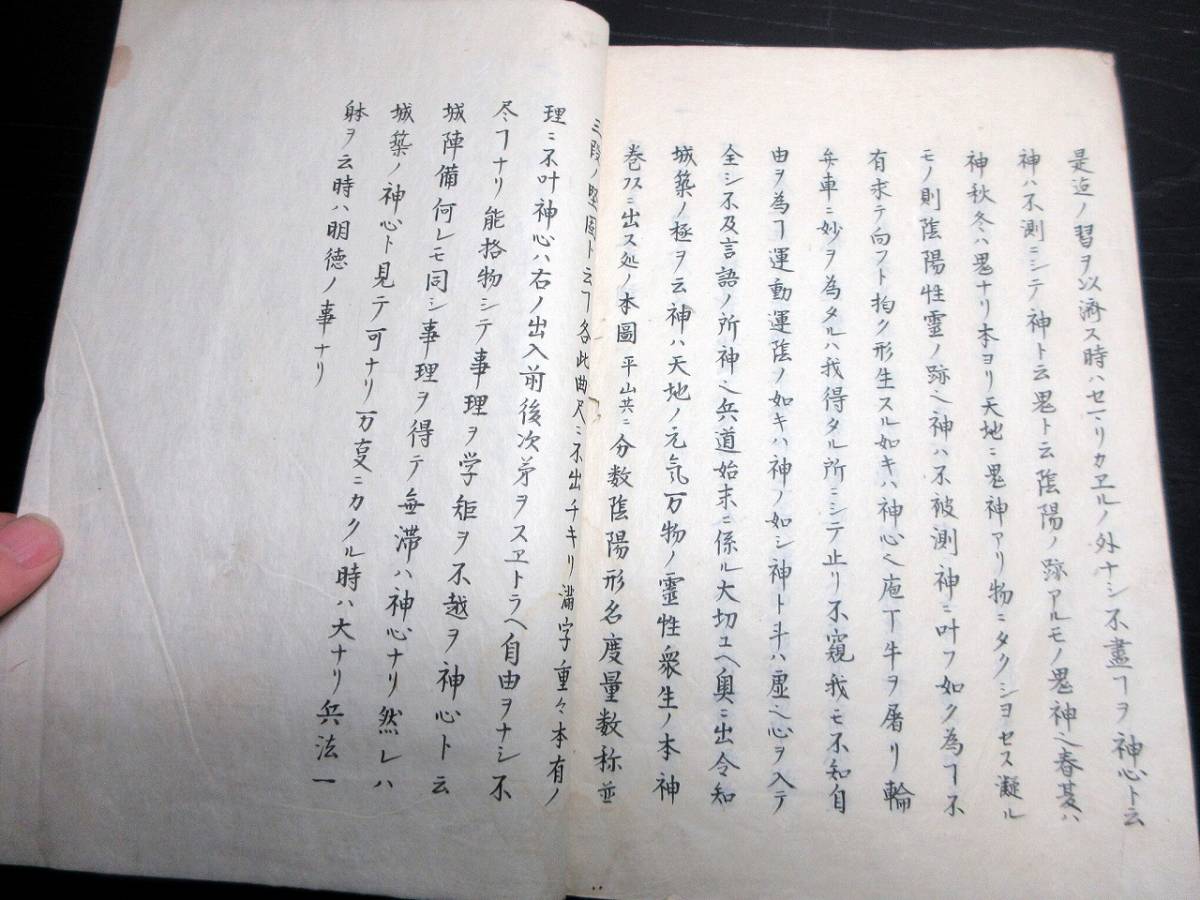 是迠ノ習ヲ以済ス時ハセマリカヱルノ外ナシ不盡ヿヲ神心ト云
神ハ不測ニシテ神ト云鬼ト云陰陽ノ跡アルモノ鬼神之春夏ハ
神秋冬ハ鬼ナリ本ヨリ天地ニ鬼神アリ物ニタクシヨセス凝ル
モノ則陰陽性霊ノ跡之神ハ不被測神ニ叶フ如ク為ヿ不
有求テ向フト拘ク形生スル如キハ神心之庖丁牛ヲ屠リ輪
兵車ニ妙ヲ為タルハ我得タル所ニシテ止リ不窺我モ不知自
由ヲ為ヿ運動運陰ノ如キハ神ノ如シ神ト斗ハ虚之心ヲ入テ
全シ不及言語ノ所神之兵道始末ニ係ル大切ユヘ奥ニ出令知
城築ノ極ヲ云神ハ天地ノ元気万物ノ霊性衆生ノ本神
巻フスニ出ス処ノ本圖平山共ニ分数陰陽形名度量数称並
三段ノ堅固ト云ヿ各此曲尺ニ不出チキリ満字重々本有ノ
理ニ不叶神心ハ右ノ出入前後次第ヲスヱトラヘ自由ヲナシ不
尽ヿナリ能格物シテ事理ヲ学矩ヲ不越ヲ神心ト云
城陣備何レモ同シ事理ヲ得テ無滞ハ神心ナリ然レハ
城築ノ神心ト見テ可ナリ万変ニカクル時ハ大ナリ兵法一
躰ヲ云時ハ明徳ノ事ナリ